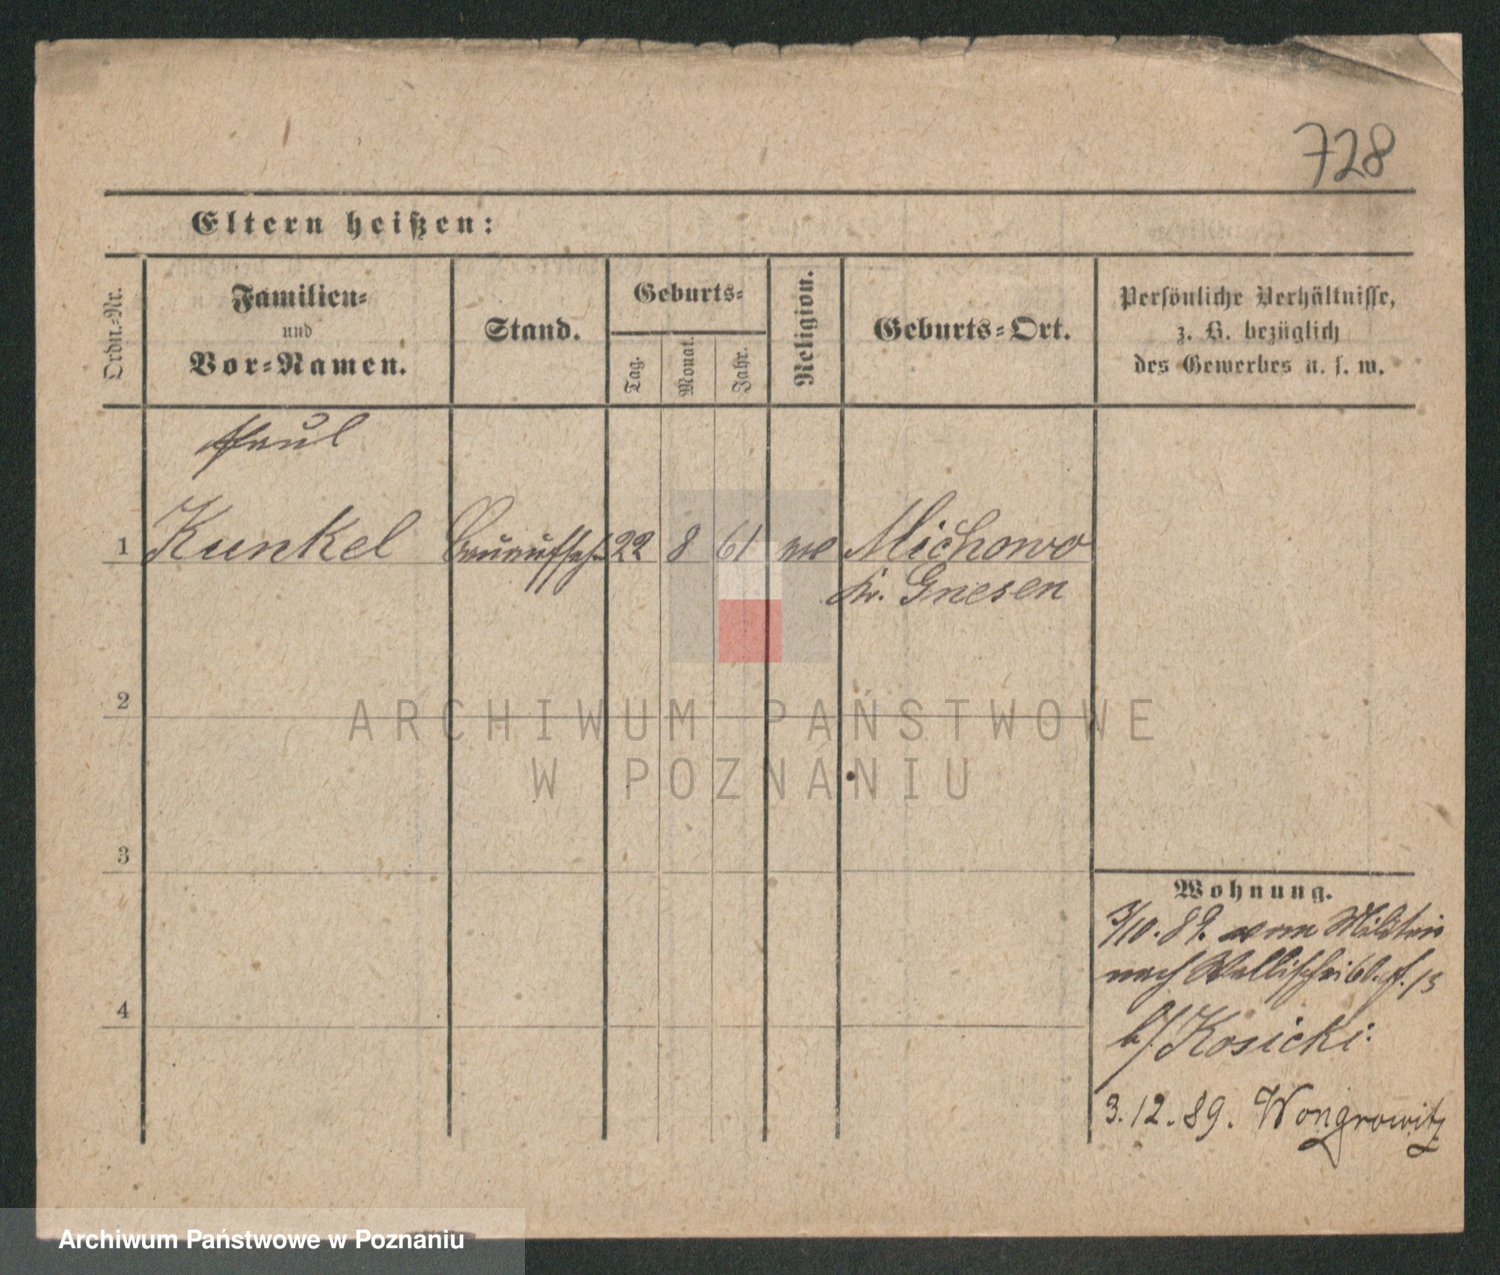 728
Eltern heißen:
Ordn.-Nr.
Familien-
und
Vor-Namen.
Stand.
Geburts-
Tag.
Monat.
Jahr.
Religion.
Geburts-Ort.
Persönliche Verhältnisse,
z. B. bezüglich
des Gewerbes u. s. w.
Paul
1 Kunkel Bauaufseh. 22 8 61 Michowo
Kr. Gnesen
2
3
4
Wohnung.
/10.89. vom Militär
nach Wallischei 13
b/ Kosicki.
3.12.89. Wongrowitz
ARCHIWUM PAŃSTWOWE
W POZNANIU
Archiwum Państwowe w Poznaniu